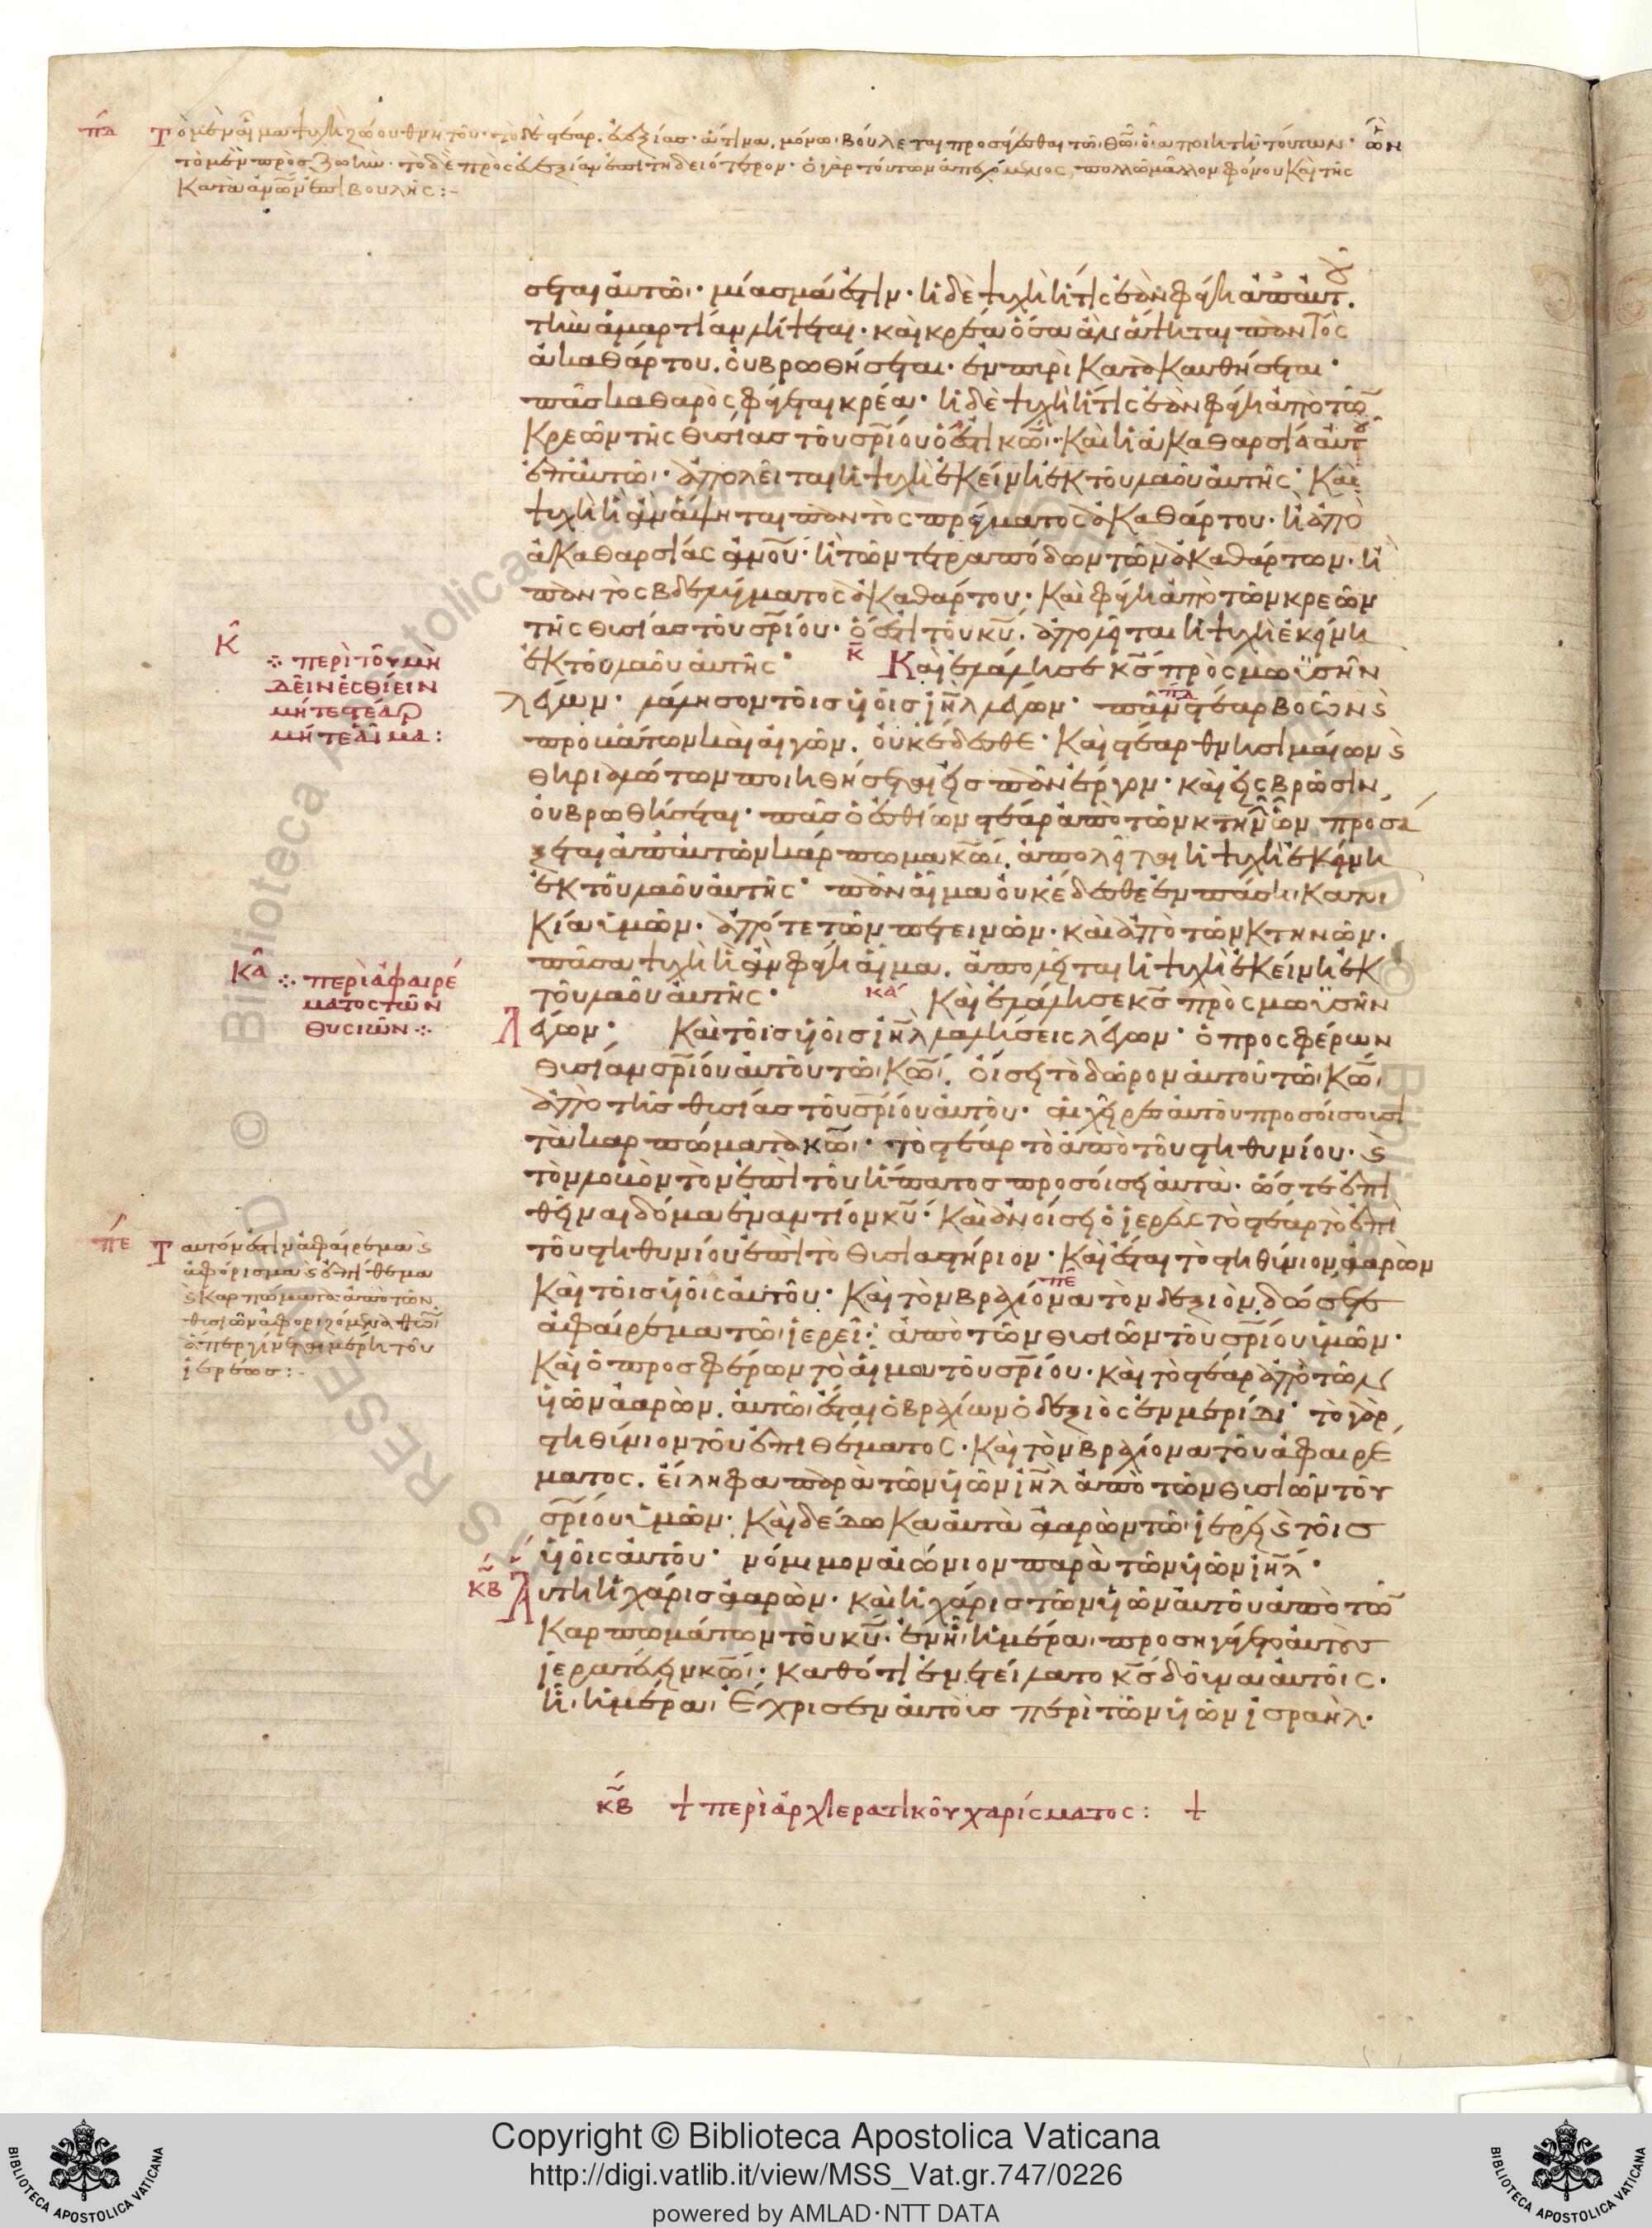 πδ Τὸ μὲν αἷμα ψυχὴ ζώου θνητοῦ· τὸ δὲ στέαρ, εὐεξίας· ἅτινα μόνω βούλεται προσάγεσθαι τῶ θ͞ω, ὁ ποιητὴς τούτων· ὧν
τὸ μὲν πρὸς ζωὴν· τὸ δὲ πρὸς εὐεξίαν ἐπιτηδειότερον· ὁ γὰρ τούτων ἀπεχόμενος, πολλῶ μᾶλλον φόνου καὶ τῆς
κατὰ ἀν͞ων ἐπιβουλῆς:-
σεται αὐτῶ· μίασμά ἐστιν· ἡ δὲ ψυχὴ ἥτις ἐὰν φάγη ἀπ' αὐτοῦ
τὴν ἁμαρτίαν λήψεται· καὶ κρέα ὅσα ἂν ἅψηται παντὸς
ἀκαθάρτου, οὐ βρωθήσεται· ἐν πυρὶ κατακαυθήσεται·
πᾶς καθαρὸς φάγεται κρέα· ἡ δὲ ψυχὴ ἥτις ἐὰν φάγη ἀπὸ τῶν
κρεῶν τῆς θυσίας τοῦ σ͞ρίου ὅ ἐστι κ͞ω· καὶ ἡ ἀκαθαρσία αὐτοῦ
ἐπ' αὐτῶ· ἀπολεῖται ἡ ψυχὴ ἐκείνη ἐκ τοῦ λαοῦ αὐτῆς· Καὶ
ψυχὴ ἣ ἂν ἅψηται παντὸς πράγματος ἀκαθάρτου· ἢ ἀπὸ
ἀκαθαρσίας ἀνου· ἢ τῶν τετραπόδων τῶν ἀκαθάρτων· ἢ
παντὸς βδελύγματος ἀκαθάρτου· καὶ φάγη ἀπὸ τῶν κρεῶν
τῆς θυσίας τοῦ σ͞ρίου· ὅ ἐστι τοῦ κ͞υ, ἀπολεῖται ἡ ψυχὴ ἐκείνη
ἐκ τοῦ λαοῦ αὐτῆς· κ Καὶ ἐλάλησε κ͞ς πρὸς μωϋσῆν
λέγων· λάλησον τοῖς υἱοῖς ἰ͞ηλ λέγων· πδ πᾶν στέαρ βοῶν ϛ
προβάτων καὶ αἰγῶν, οὐκ ἔδεσθε· Καὶ στέαρ θνησιμαίων ϛ
θηριαλώτων ποιηθήσεται εἰς πᾶν ἔργον· καὶ εἰς βρῶσιν
οὐ βρωθήσεται· πᾶς ὁ ἐσθίων στέαρ ἀπὸ τῶν κτηνῶν, ὧν προσά
ξεται ἀπ' αὐτῶν κάρπωμα κ͞ω, ἀπολεῖται ἡ ψυχὴ ἐκείνη
ἐκ τοῦ λαοῦ αὐτῆς· πᾶν αἷμα οὐκ ἔδεσθε ἐν πάση κατοι
κία ὑμῶν· ἀπό τε τῶν πετεινῶν· καὶ ἀπὸ τῶν κτηνῶν·
πᾶσα ψυχὴ ἣ ἂν φάγη αἷμα, ἀπολεῖται ἡ ψυχὴ ἐκείνη ἐκ
τοῦ λαοῦ αὐτῆς· κα Καὶ ἐλάλησε κ͞ς πρὸς μωϋσῆν
λέγων· Καὶ τοῖς υἱοῖς ἰ͞ηλ λαλήσεις λέγων· ὁ προσφέρων
θυσίαν σ͞ρίου αὐτοῦ τῶ κ͞ω, οἴσει τὸ δῶρον αὐτοῦ τῶ κ͞ω,
ἀπὸ τῆς θυσίας τοῦ σ͞ρίου αὐτοῦ· αἱ χεῖρες αὐτοῦ προσοίσουσι
τὰ καρπώματα κ͞ω· τὸ στέαρ τὸ ἀπὸ τοῦ στηθυνίου· ϛ
τὸν λοβὸν τὸν ἐπὶ τοῦ ἥπατος προσοίσει αὐτὰ· ὥστε ἐπι
θεῖναι δόμα ἐναντίον κ͞υ· Καὶ ἀνοίσει ὁ ἱερεὺς τὸ στέαρ τὸ ἐπὶ
τοῦ στηθυνίου ἐπὶ τὸ θυσιαστήριον· Καὶ ἔσται τὸ στηθύνιον ἀαρὼν
καὶ τοῖς υἱοῖς αὐτοῦ· Καὶ τὸν βραχίονα πε τὸν δεξιὸν, δώσετε
ἀφαίρεμα τῶ ἱερεῖ· ἀπὸ τῶν θυσιῶν τοῦ σ͞ρίου ὑμῶν·
Καὶ ὁ προσφέρων τὸ αἷμα τοῦ σ͞ρίου· καὶ τὸ στέαρ ἀπὸ τῶν
υἱῶν ἀαρὼν, αὐτῶ ἔσται ὁ βραχίων ὁ δεξιὸς ἐν μερίδι· τὸ γὰρ
στηθύνιον τοῦ ἐπιθέματος· Καὶ τὸν βραχίονα τοῦ ἀφαιρέ
ματος, εἴληφα παρὰ τῶν υἱῶν ἰ͞ηλ ἀπὸ τῶν θυσιῶν τοῦ
σ͞ρίου ὑμῶν· Καὶ δέδωκα αὐτὰ ἀαρὼν τῶ ἱερεῖ ϛ τοῖς
υἱοῖς αὐτοῦ· νόμιμον αἰώνιον παρὰ τῶν υἱῶν ἰ͞ηλ·
κβ Αὕτη ἡ χάρις ἀαρὼν· καὶ ἡ χάρις τῶν υἱῶν αὐτοῦ ἀπὸ τῶν
καρπωμάτων τοῦ κ͞υ· ἐν ἧ ἡμέρα προσηγάγετο αὐτοὺς
ἱερατεύειν κ͞ω· καθότι ἐνετείλατο κ͞ς δοῦναι αὐτοῖς·
ἧ ἡμέρα ἔχρισεν αὐτοὺς περὶ τῶν υἱῶν ἰσραήλ·
κ
∻ περὶ τοῦ μὴ
δεῖν ἐσθίειν
μήτε στέαρ
μήτε αἷμα:
κα
∻ περὶ ἀφαιρέ
ματος τῶν
θυσιῶν ∻
πε Ταυτόν ἐστιν ἀφαίρεμα ϛ
ἀφόρισμα ϛ ἐπίθεμα
ϛ καρπώματα ἀπὸ τῶν
θυσιῶν ἀφοριζόμενα θ͞ω,
ἅπερ γίνεται μέρη τοῦ
ἱερέως:-
κβ + περὶ ἀρχιερατικοῦ χαρίσματος: +
Biblioteca Apostolica Vaticana
Copyright © Biblioteca Apostolica Vaticana
http://digi.vatlib.it/view/MSS_Vat.gr.747/0226
powered by AMLAD·NTT DATA
BIBLIOTECA APOSTOLICA VATICANA
BIBLIOTECA APOSTOLICA VATICANA